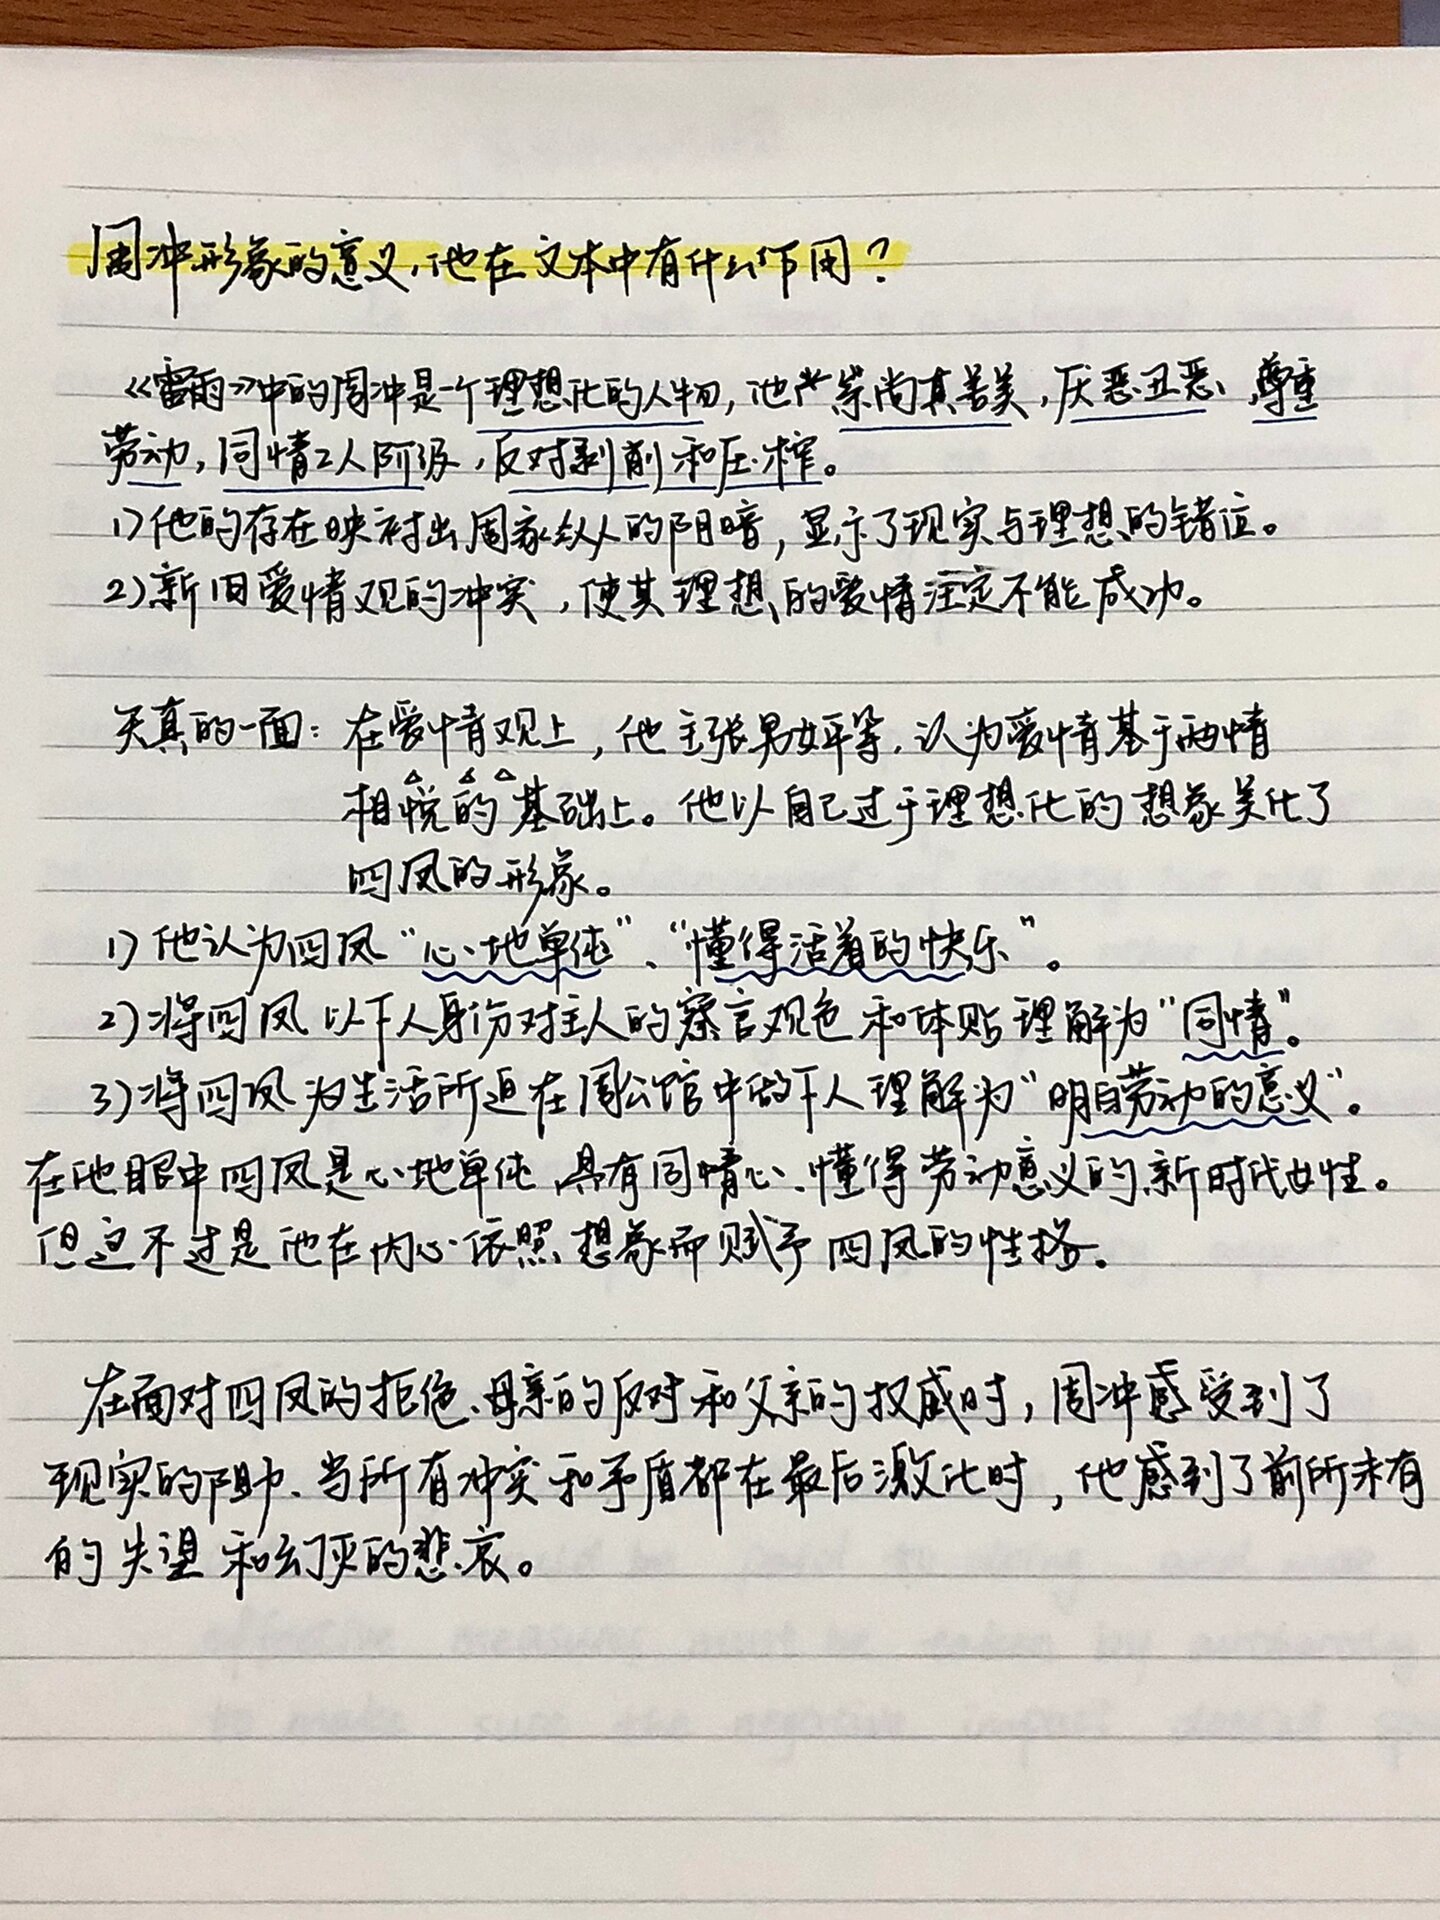 周冲形象的意义，他在文本中有什么作用？
《雷雨》中的周冲是一个理想化的人物，他崇尚真善美，厌恶丑恶，尊重
劳动，同情工人阶级，反对剥削和压榨。
1）他的存在映衬出周家众人的阴暗，显示了现实与理想的错位。
2）新旧爱情观的冲突，使其理想的爱情注定不能成功。
天真的一面：在爱情观上，他主张男女平等，认为爱情基于两情
相悦的基础上。他以自己过于理想化的想象美化了
四凤的形象。
1）他认为四凤“心地单纯”、“懂得活着的快乐”。
2）将四凤以下人身份对主人的察言观色和体贴理解为“同情”。
3）将四凤为生活所迫在周公馆中做下人理解为“明白劳动的意义”。
在他眼中四凤是心地单纯、具有同情心、懂得劳动意义的新时代女性。
但这不过是他在内心依照想象而赋予四凤的性格。
在面对四凤的拒绝、母亲的反对和父亲的权威时，周冲感受到了
现实的阻助、当所有冲突和矛盾都在最后激化时，他感到了前所未有
的失望和幻灭的悲哀。